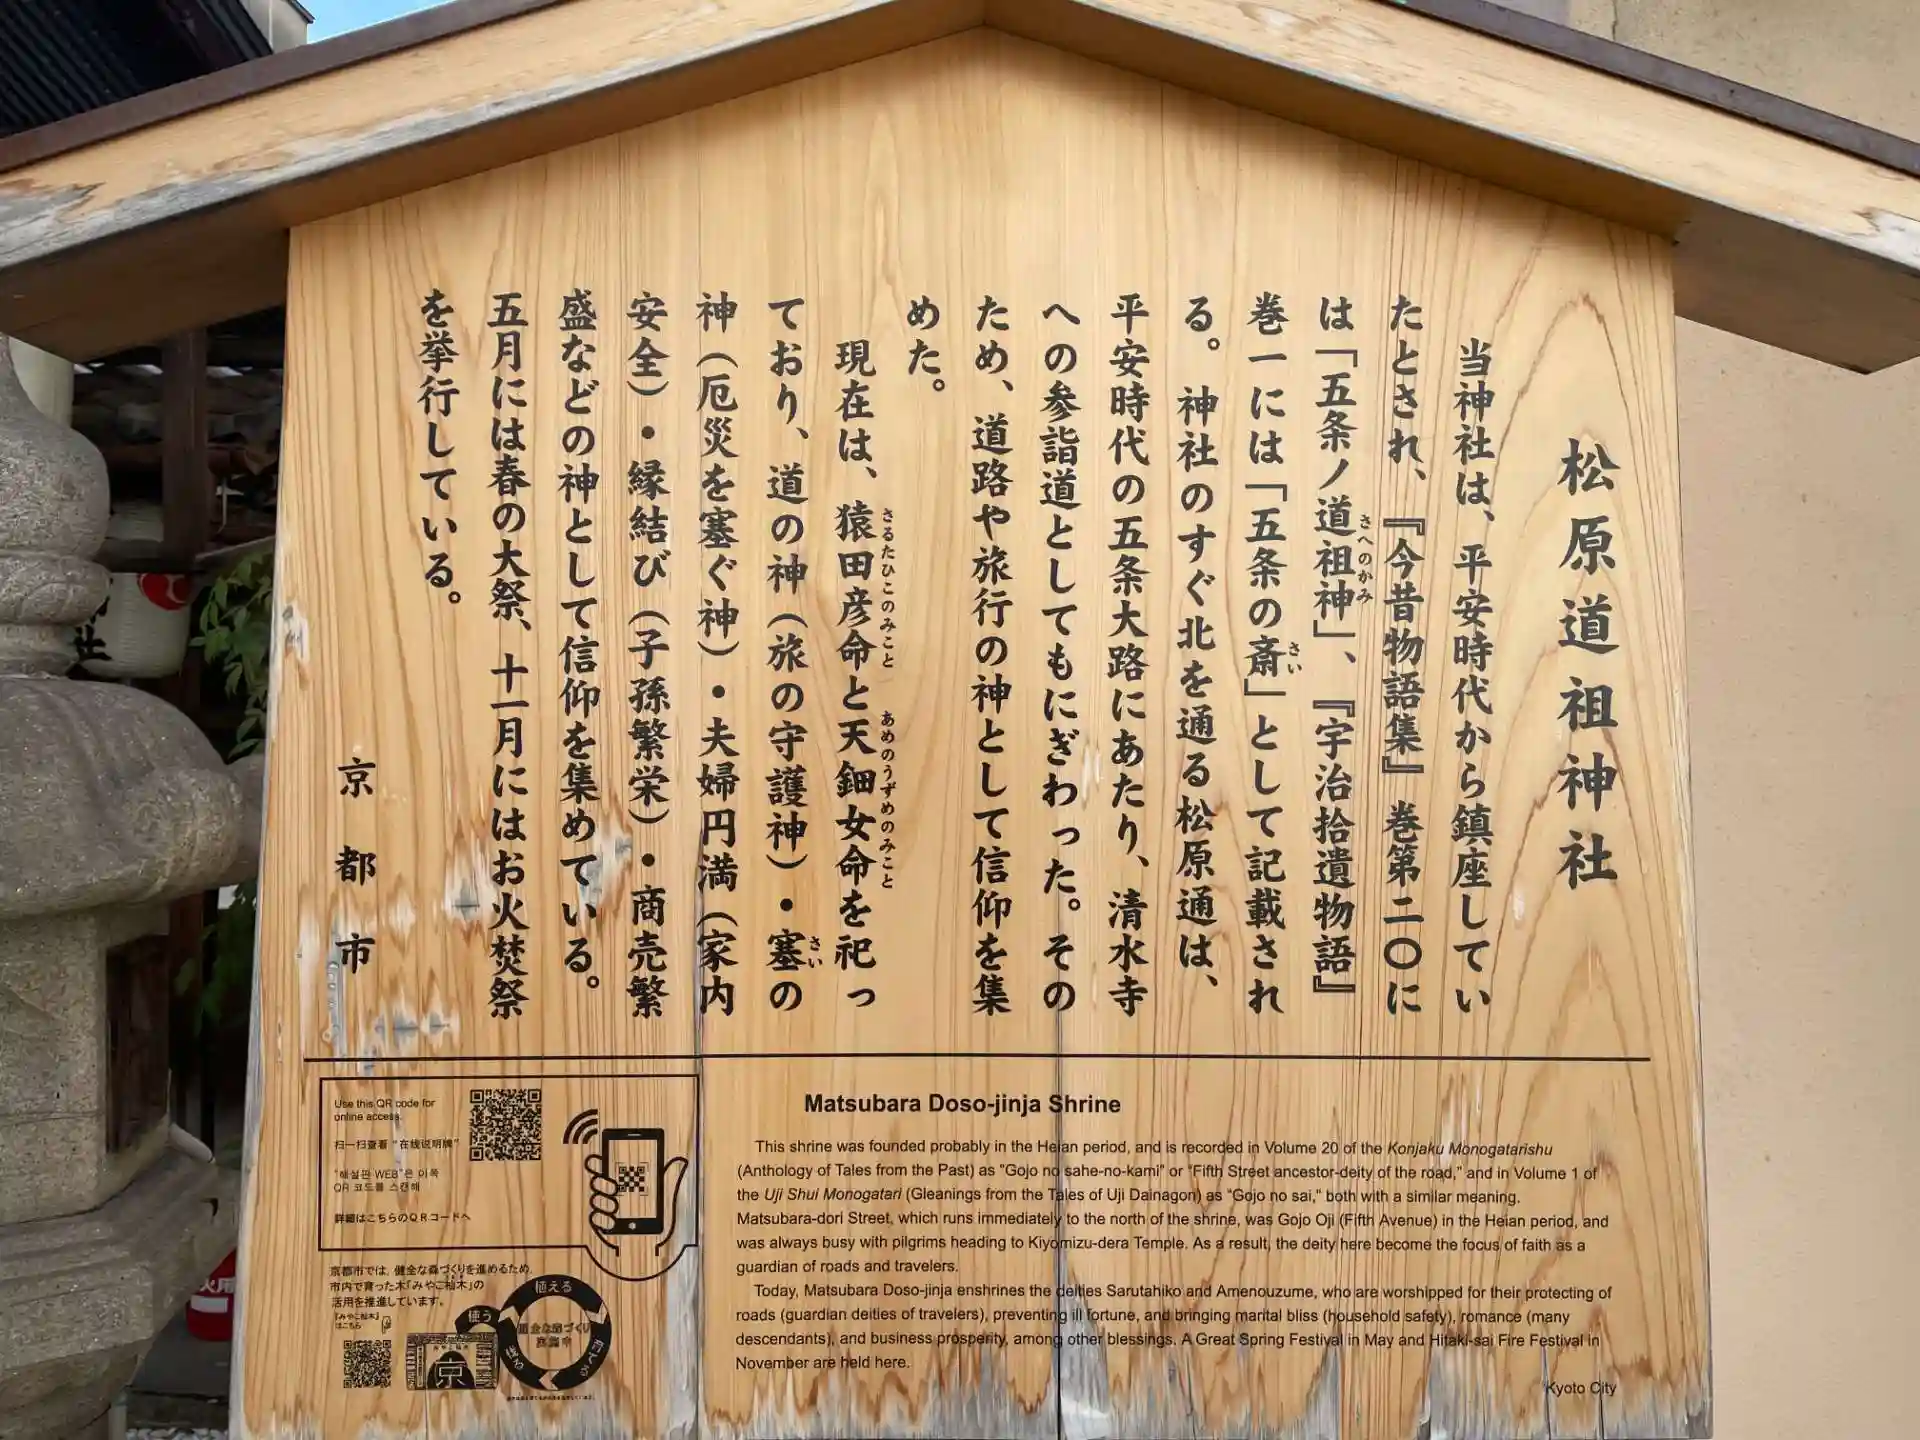 松原道祖神社
当神社は、平安時代から鎮座してい
たとされ、『今昔物語集』巻第二〇に
は「五条ノ道祖神」、『宇治拾遺物語』
さへのかみ
巻一には「五条の斎」として記載され
さい
る。神社のすぐ北を通る松原通は、
平安時代の五条大路にあたり、清水寺
への参詣道としてもにぎわった。その
ため、道路や旅行の神として信仰を集
めた。
現在は、猿田彦命と天鈿女命を祀っ
さるたひこのみこと
あめのうずめのみこと
ており、道の神（旅の守護神）・塞の
さい
神（厄災を塞ぐ神）・夫婦円満（家内
安全）・縁結び（子孫繁栄）・商売繁
盛などの神として信仰を集めている。
五月には春の大祭、十一月にはお火焚祭
を挙行している。
京都市
Use this QR code for
online access.
扫一扫查看“在线说明牌”
"해설판 WEB"은 이쪽
QR 코드를 스캔해
詳細はこちらのQRコードへ
京都市では、健全な森づくりを進めるため、
市内で育った木「みやこ杣木」の
活用を推進しています。
「みやこ杣木」
はこちら
使う
植える
京
Matsubara Doso-jinja Shrine
This shrine was founded probably in the Heian period, and is recorded in Volume 20 of the Konjaku Monogatarishu
(Anthology of Tales from the Past) as "Gojo no sahe-no-kami" or "Fifth Street ancestor-deity of the road," and in Volume 1 of
the Uji Shui Monogatari (Gleanings from the Tales of Uji Dainagon) as "Gojo no sai," both with a similar meaning.
Matsubara-dori Street, which runs immediately to the north of the shrine, was Gojo Oji (Fifth Avenue) in the Heian period, and
was always busy with pilgrims heading to Kiyomizu-dera Temple. As a result, the deity here become the focus of faith as a
guardian of roads and travelers.
Today, Matsubara Doso-jinja enshrines the deities Sarutahiko and Amenouzume, who are worshipped for their protecting of
roads (guardian deities of travelers), preventing ill fortune, and bringing marital bliss (household safety), romance (many
descendants), and business prosperity, among other blessings. A Great Spring Festival in May and Hitaki-sai Fire Festival in
November are held here.
Kyoto City